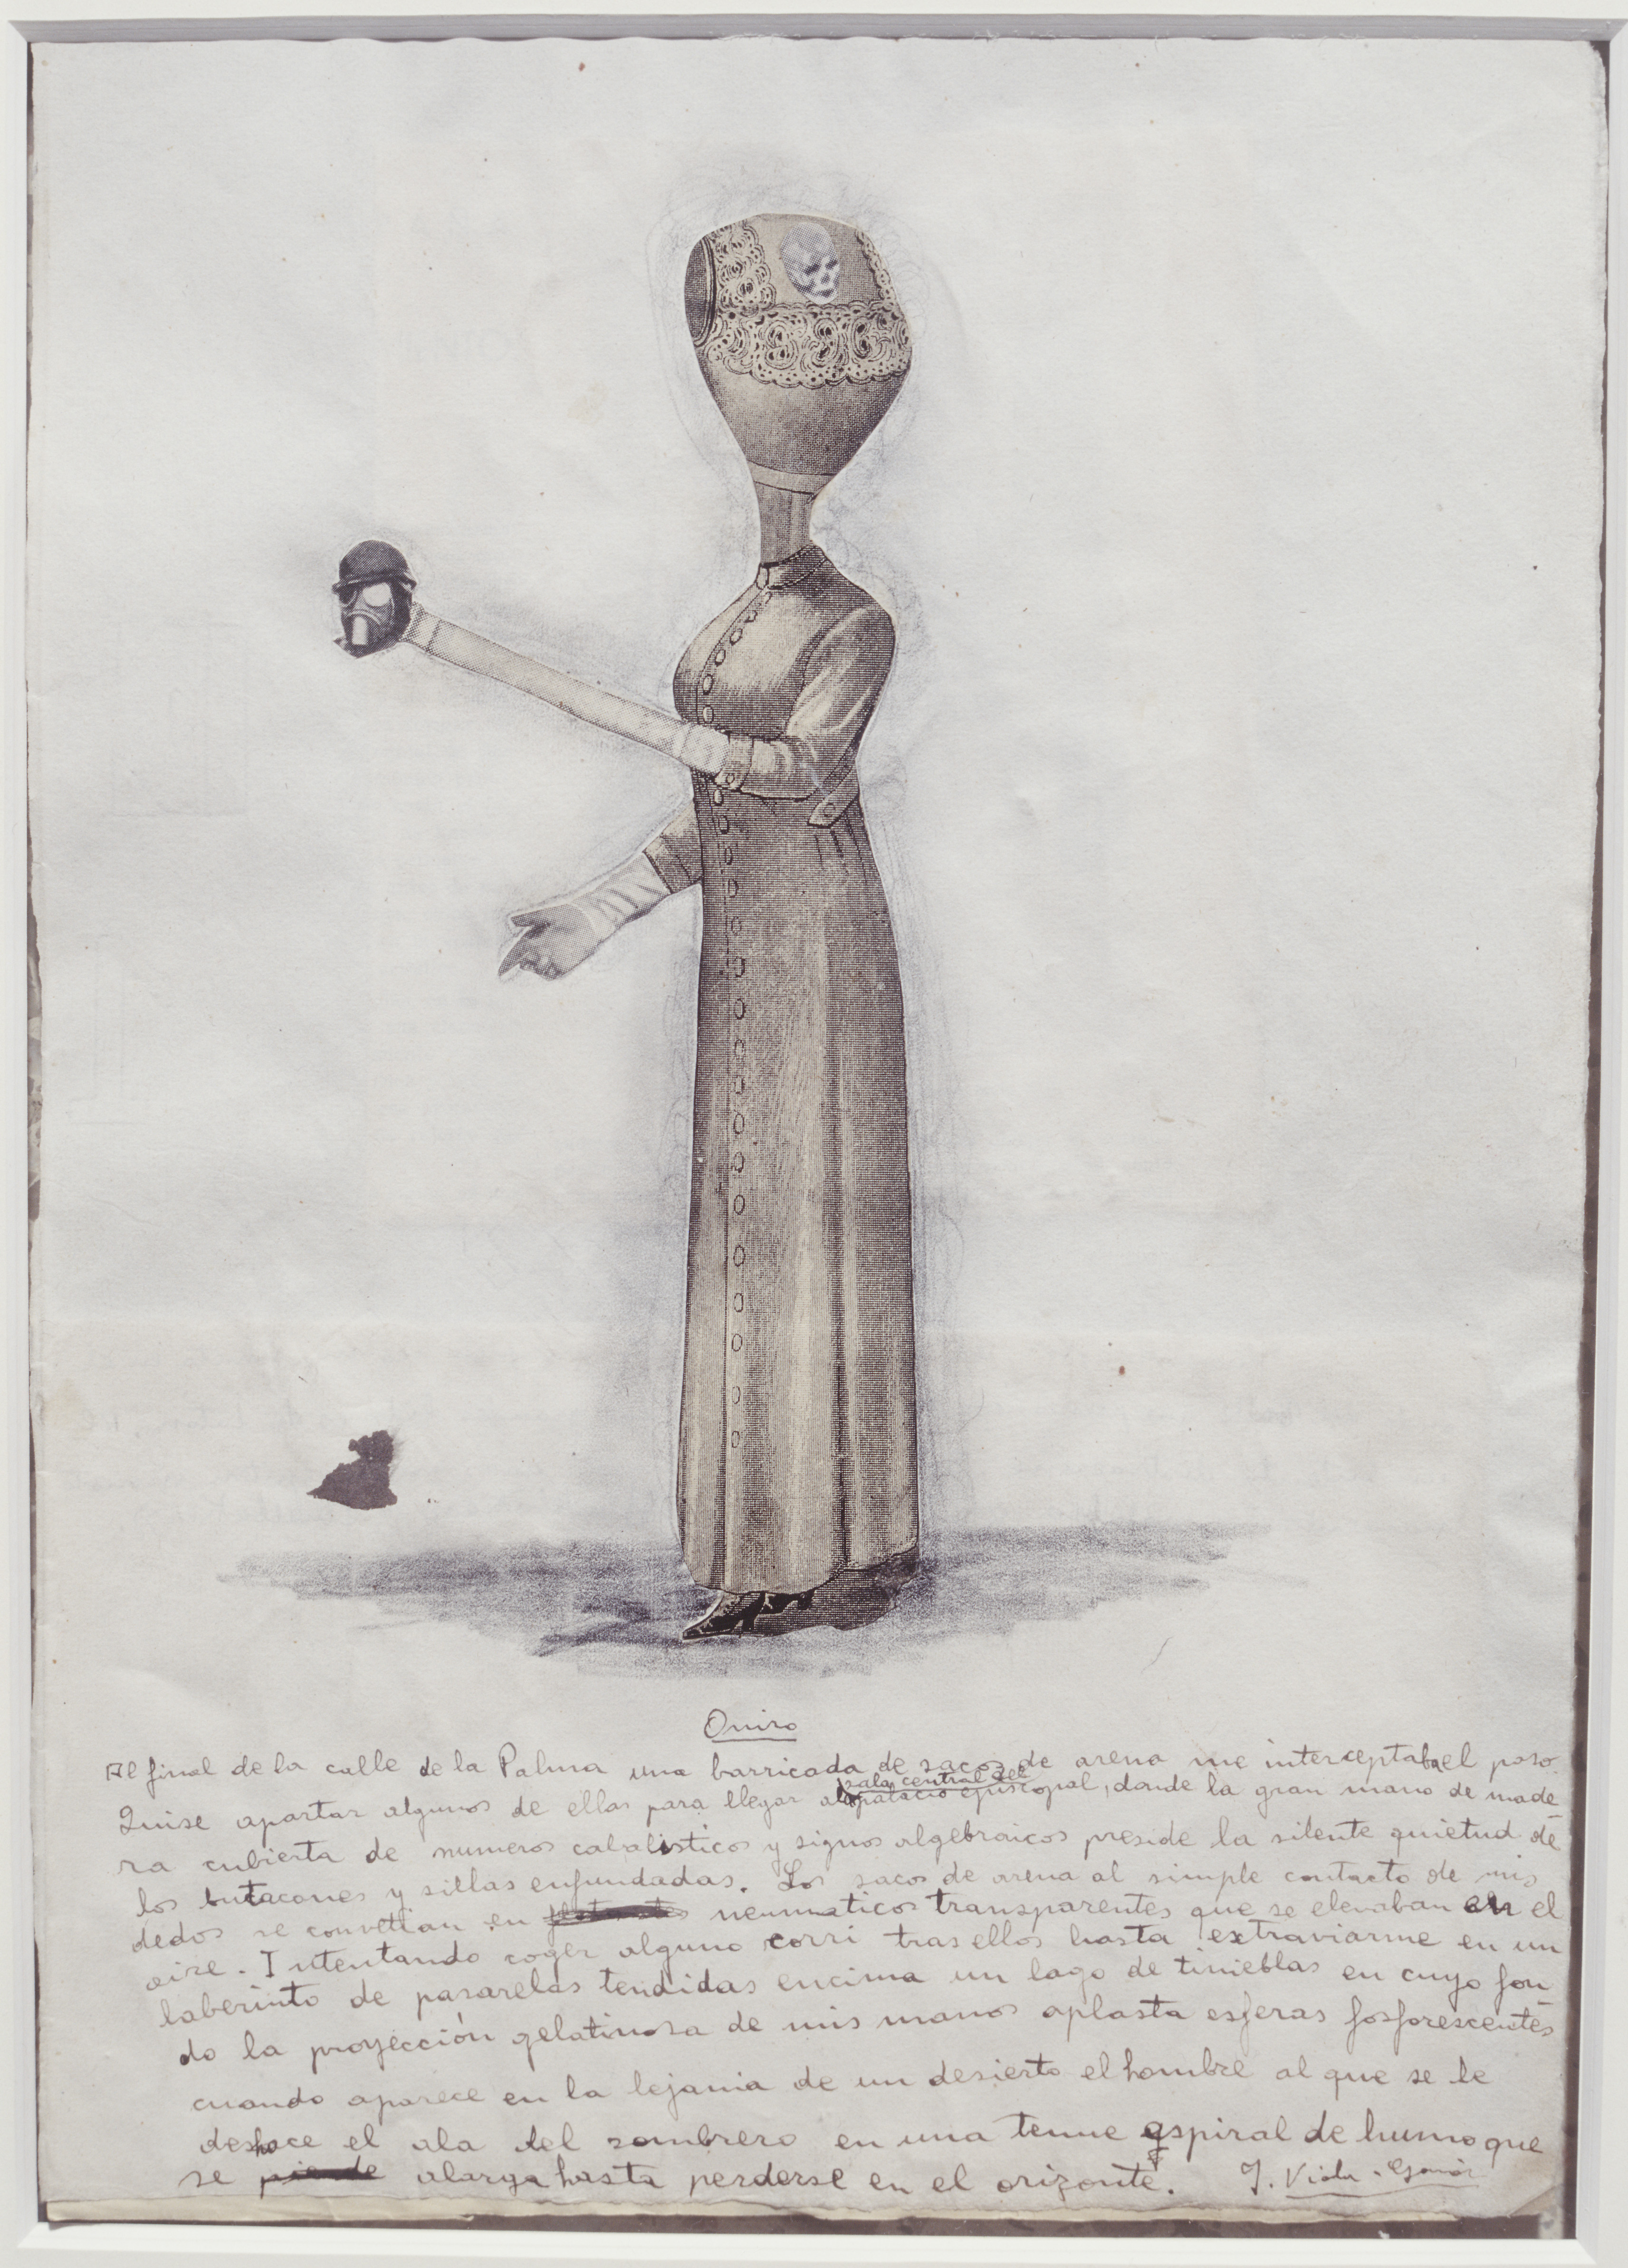 Oniro
Al final de la calle de la Palma una barricada de sacos de arena me interceptaba el paso.
Quise apartar algunos de ellos para llegar a la sala central del palacio episcopal, donde la gran mano de made-
ra cubierta de numeros cabalisticos y signos algebraicos preside la silente quietud de
los butacones y sillas enfundadas. Los sacos de arena al simple contacto de mis
dedos se convertian en neumaticos transparentes que se elevaban en el
aire. Intentando coger alguno corri tras ellos hasta extraviarme en un
laberinto de pasarelas tendidas encima un lago de tinieblas en cuyo fon-
do la proyección gelatinosa de mis manos aplasta esferas fosforescentes
cuando aparece en la lejania de un desierto el hombre al que se le
deshace el ala del sombrero en una tenue espiral de humo que
se alarga hasta perderse en el orizonte. J. Viola-Gamón